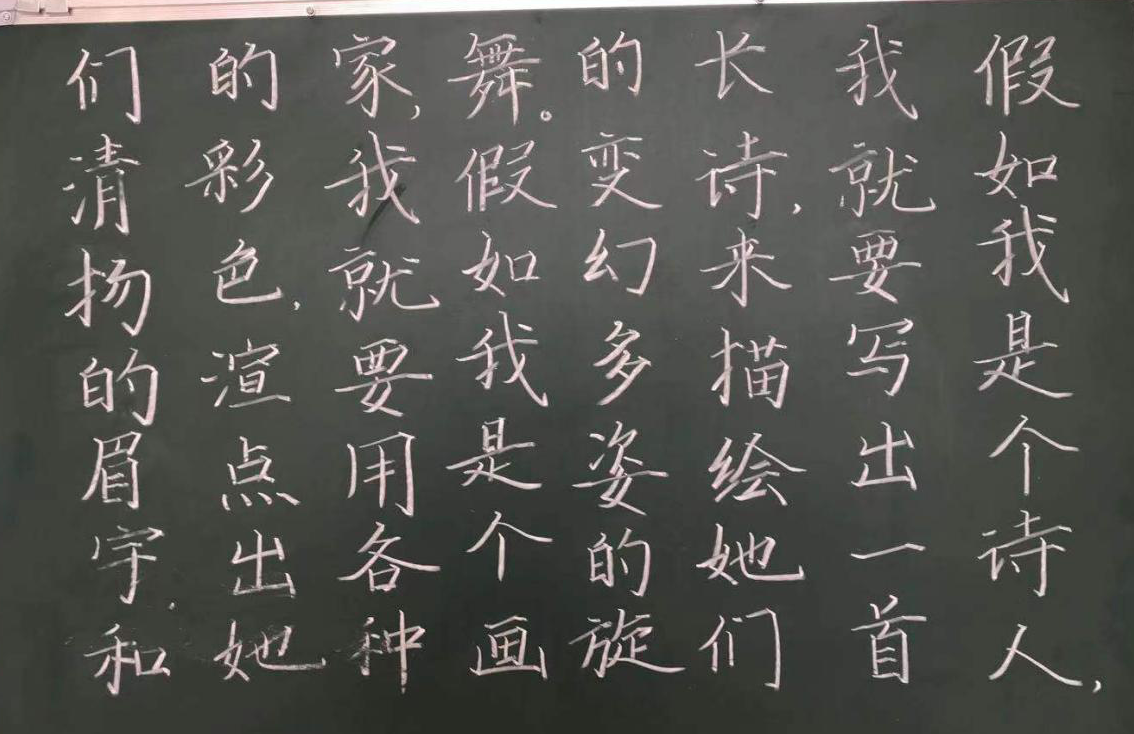 假如我是个诗人，
我就要写出一首
长诗，来描绘她们
的变幻多姿的旋
舞。假如我是个画
家，我就要用各种
的彩色，渲点出她
们清扬的眉宇和